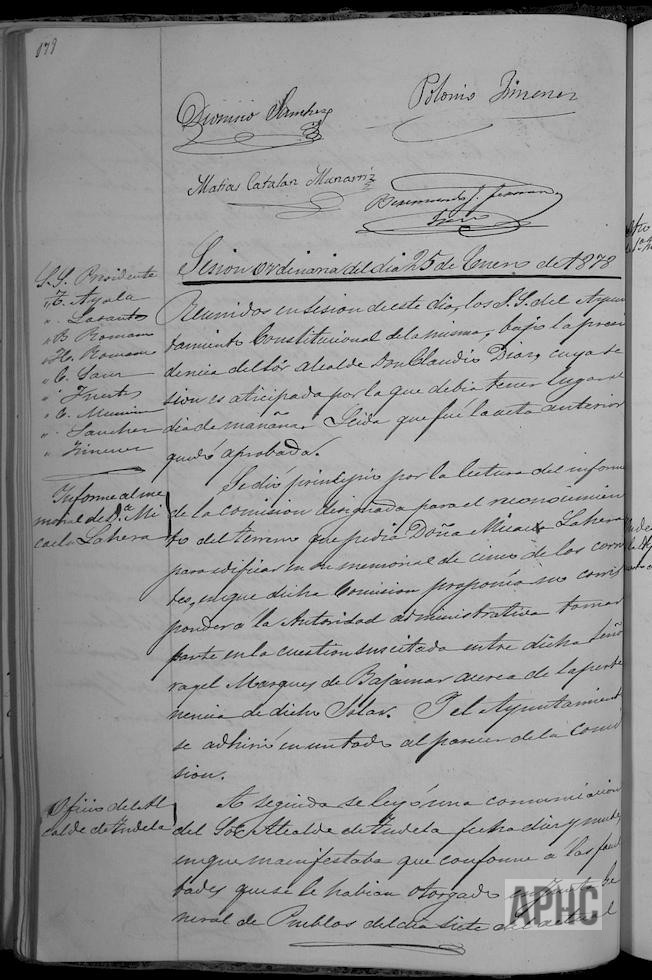 Dionisio Sanchez
Polonio Jimenez
Matias Catalan Manarriz
Sesion ordinaria del dia 25 de Enero de 1878
S.S. Presidente
" T. Ayala
"
" B. Romano
" H. Romano
" C. Sanz
" Fuertes
" C.
" Sanchez
" Jimenez
Reunidos en sesion de este dia, los S.S. del Ayun
tamiento Constitucional de la misma, bajo la presi
dencia del Sór Alcalde Don Claudio Diaz, cuya se
sion es aticipada por la que debia tener lugar el
dia de mañana. Leida que fué la acta anterior
quedó aprobada.
Informe al me
morial de D.ª Mi
caela Lahera
Se dio principio por la lectura del informe
de la comision designada para el reconocimien
to del terreno que pedia Doña Micaela Lahera
para edificar en su memorial de cinco de los corrien
tes, en que dicha Comision proponia no corres
ponder á la Autoridad administrativa tomar
parte en la cuestion suscitada entre dicha Seño
ra y el Marques de Bajamar acerca de la perte
nencia de dicho Solar. Y el Ayuntamiento
se adhirió en un todo al parecer de la comi
sion.
Oficio del Al
calde de Tudela
A seguida se leyó una comunicacion
del Sor Alcalde de Tudela fecha diez y nueve
en que manifestaba que conforme a las facul
tades que se le habian otorgado en Junta Ge
neral de Pueblos del dia siete del actual
APHC